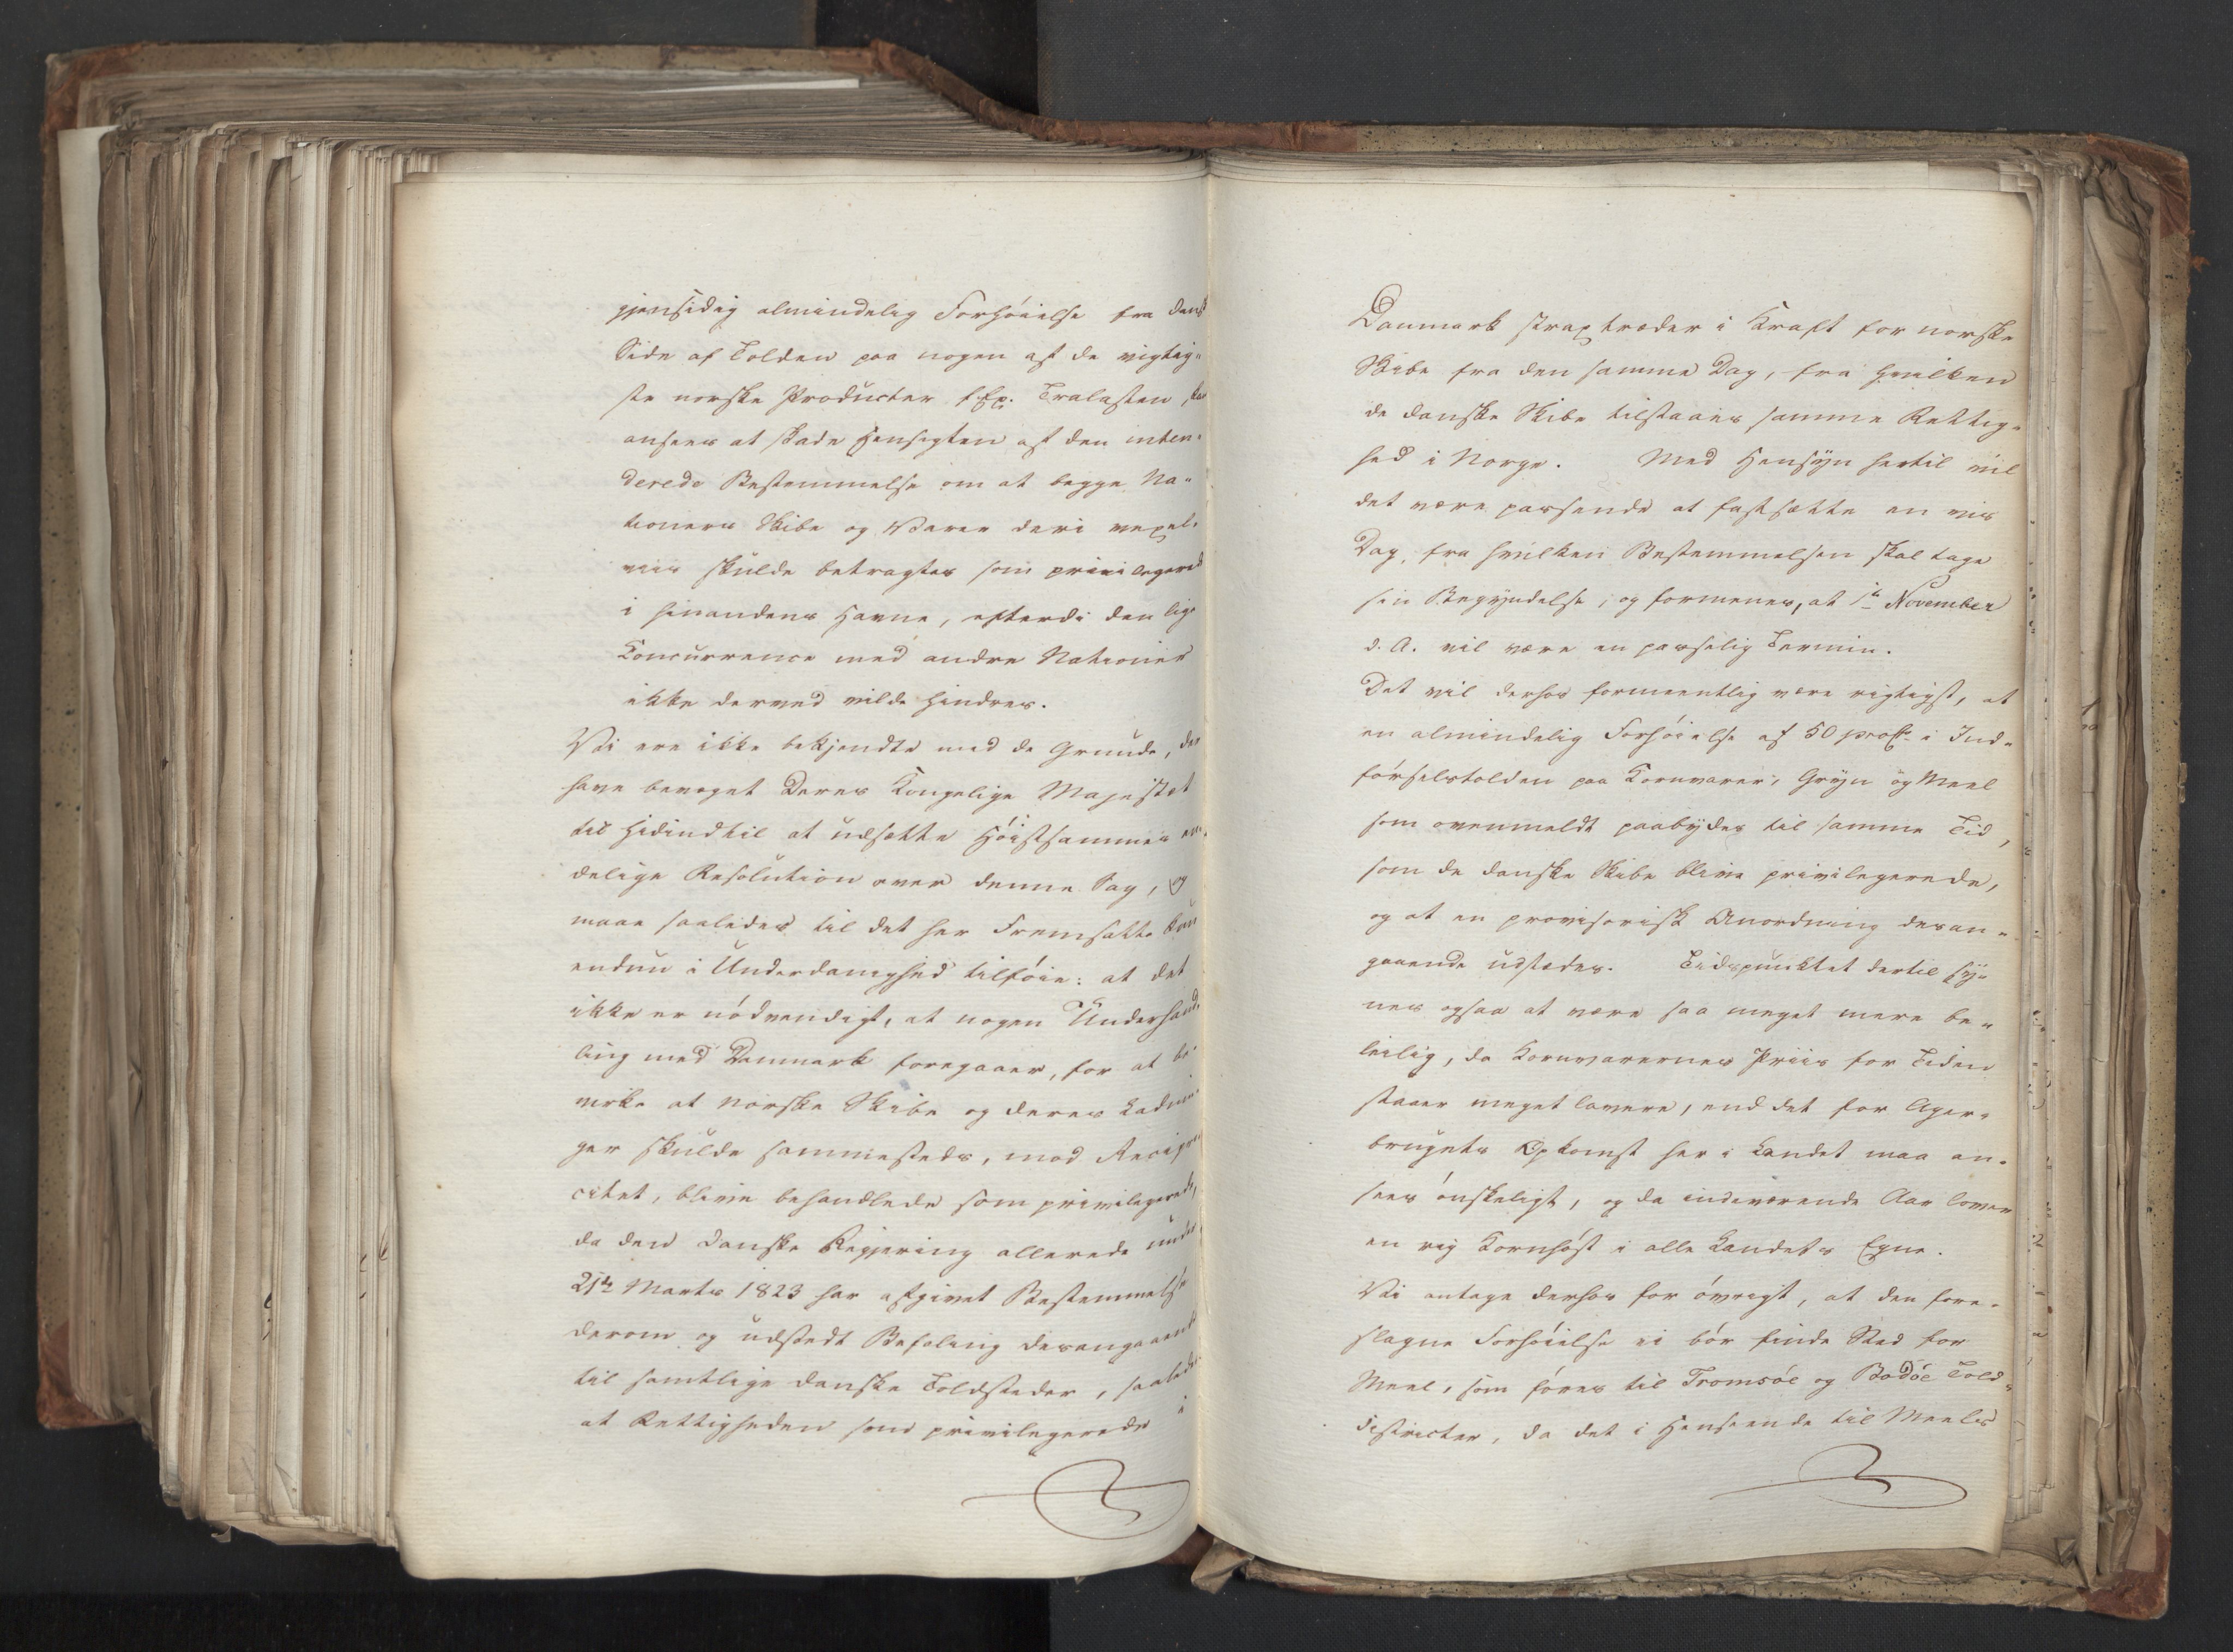 gjensidig almindelig Forhöielse fra dansk
Side af Tolden paa nogen af de vigtig-
ste norske Producter f. Ex. Trælasten, kan
ansees at skade Hensigten af den inten-
derede Bestemmelse om at begge Na-
tioners Skibe og Varer deri vexel-
viis skulde betragtes som privilegerede
i hinandens Havne, efterdi den lige
Concurrence med andre Nationer
ikke derved vilde hindres.
Vi ere ikke bekjendte med de Grunde, der
have bevæget Deres Kongelige Majestæt
til hidindtil at udsætte Höistsammes en-
delige Resolution over denne Sag, og
maae saaledes til det her Fremsatte kun
endnu i Underdanighed tilföie: at det
ikke er nödvendigt, at nogen Underhand-
ling med Danmark foregaaer, for at be-
virke at norske Skibe og deres Ladnin-
ger skulde sammesteds, mod Recipro-
citet, blive behandlede som privilegerede,
da den danske Regjering allerede under
21de Marts 1823 har afgivet Bestemmelse
derom og udstedt Befaling desangaaende
til samtlige danske Toldsteder, saaledes
at Rettigheden som privilegerede i
Danmark strax træder i Kraft for norske
Skibe fra den samme Dag, fra hvilken
de danske Skibe tilstaaes samme Rettig-
hed i Norge. Med Hensyn hertil vil
det være passende at fastsætte en vis
Dag, fra hvilken Bestemmelsen skal tage
sin Begyndelse, og formenes, at 1ste November
d. A. vil være en passelig Termin.
Det vil derhos formeentlig være rigtigst, at
en almindelig Forhöielse af 50 proCt. i Ind-
förselstolden paa Kornvarer, Gryn og Meel
som ovenmeldt paabydes til samme Tid,
som de danske Skibe blive privilegerede,
og at en provisorisk Anordning desan-
gaaende udstædes. Tidspunktet dertil sy-
nes ogsaa at være saa meget mere be-
leilig, da Kornvarernes Priis for Tiden
staaer meget lavere, end det for Ager-
brugets Opkomst her i Landet maa an-
sees önskeligt, og da indeværende Aar lover
en rig Kornhöst i alle Landets Egne.
Vi antage derhos for övrigt, at den fore-
slagne Forhöielse ei bör finde Sted for
Meel, som föres til Tromsöe og Bodöe Told-
districter, da det i Henseende til Meelet